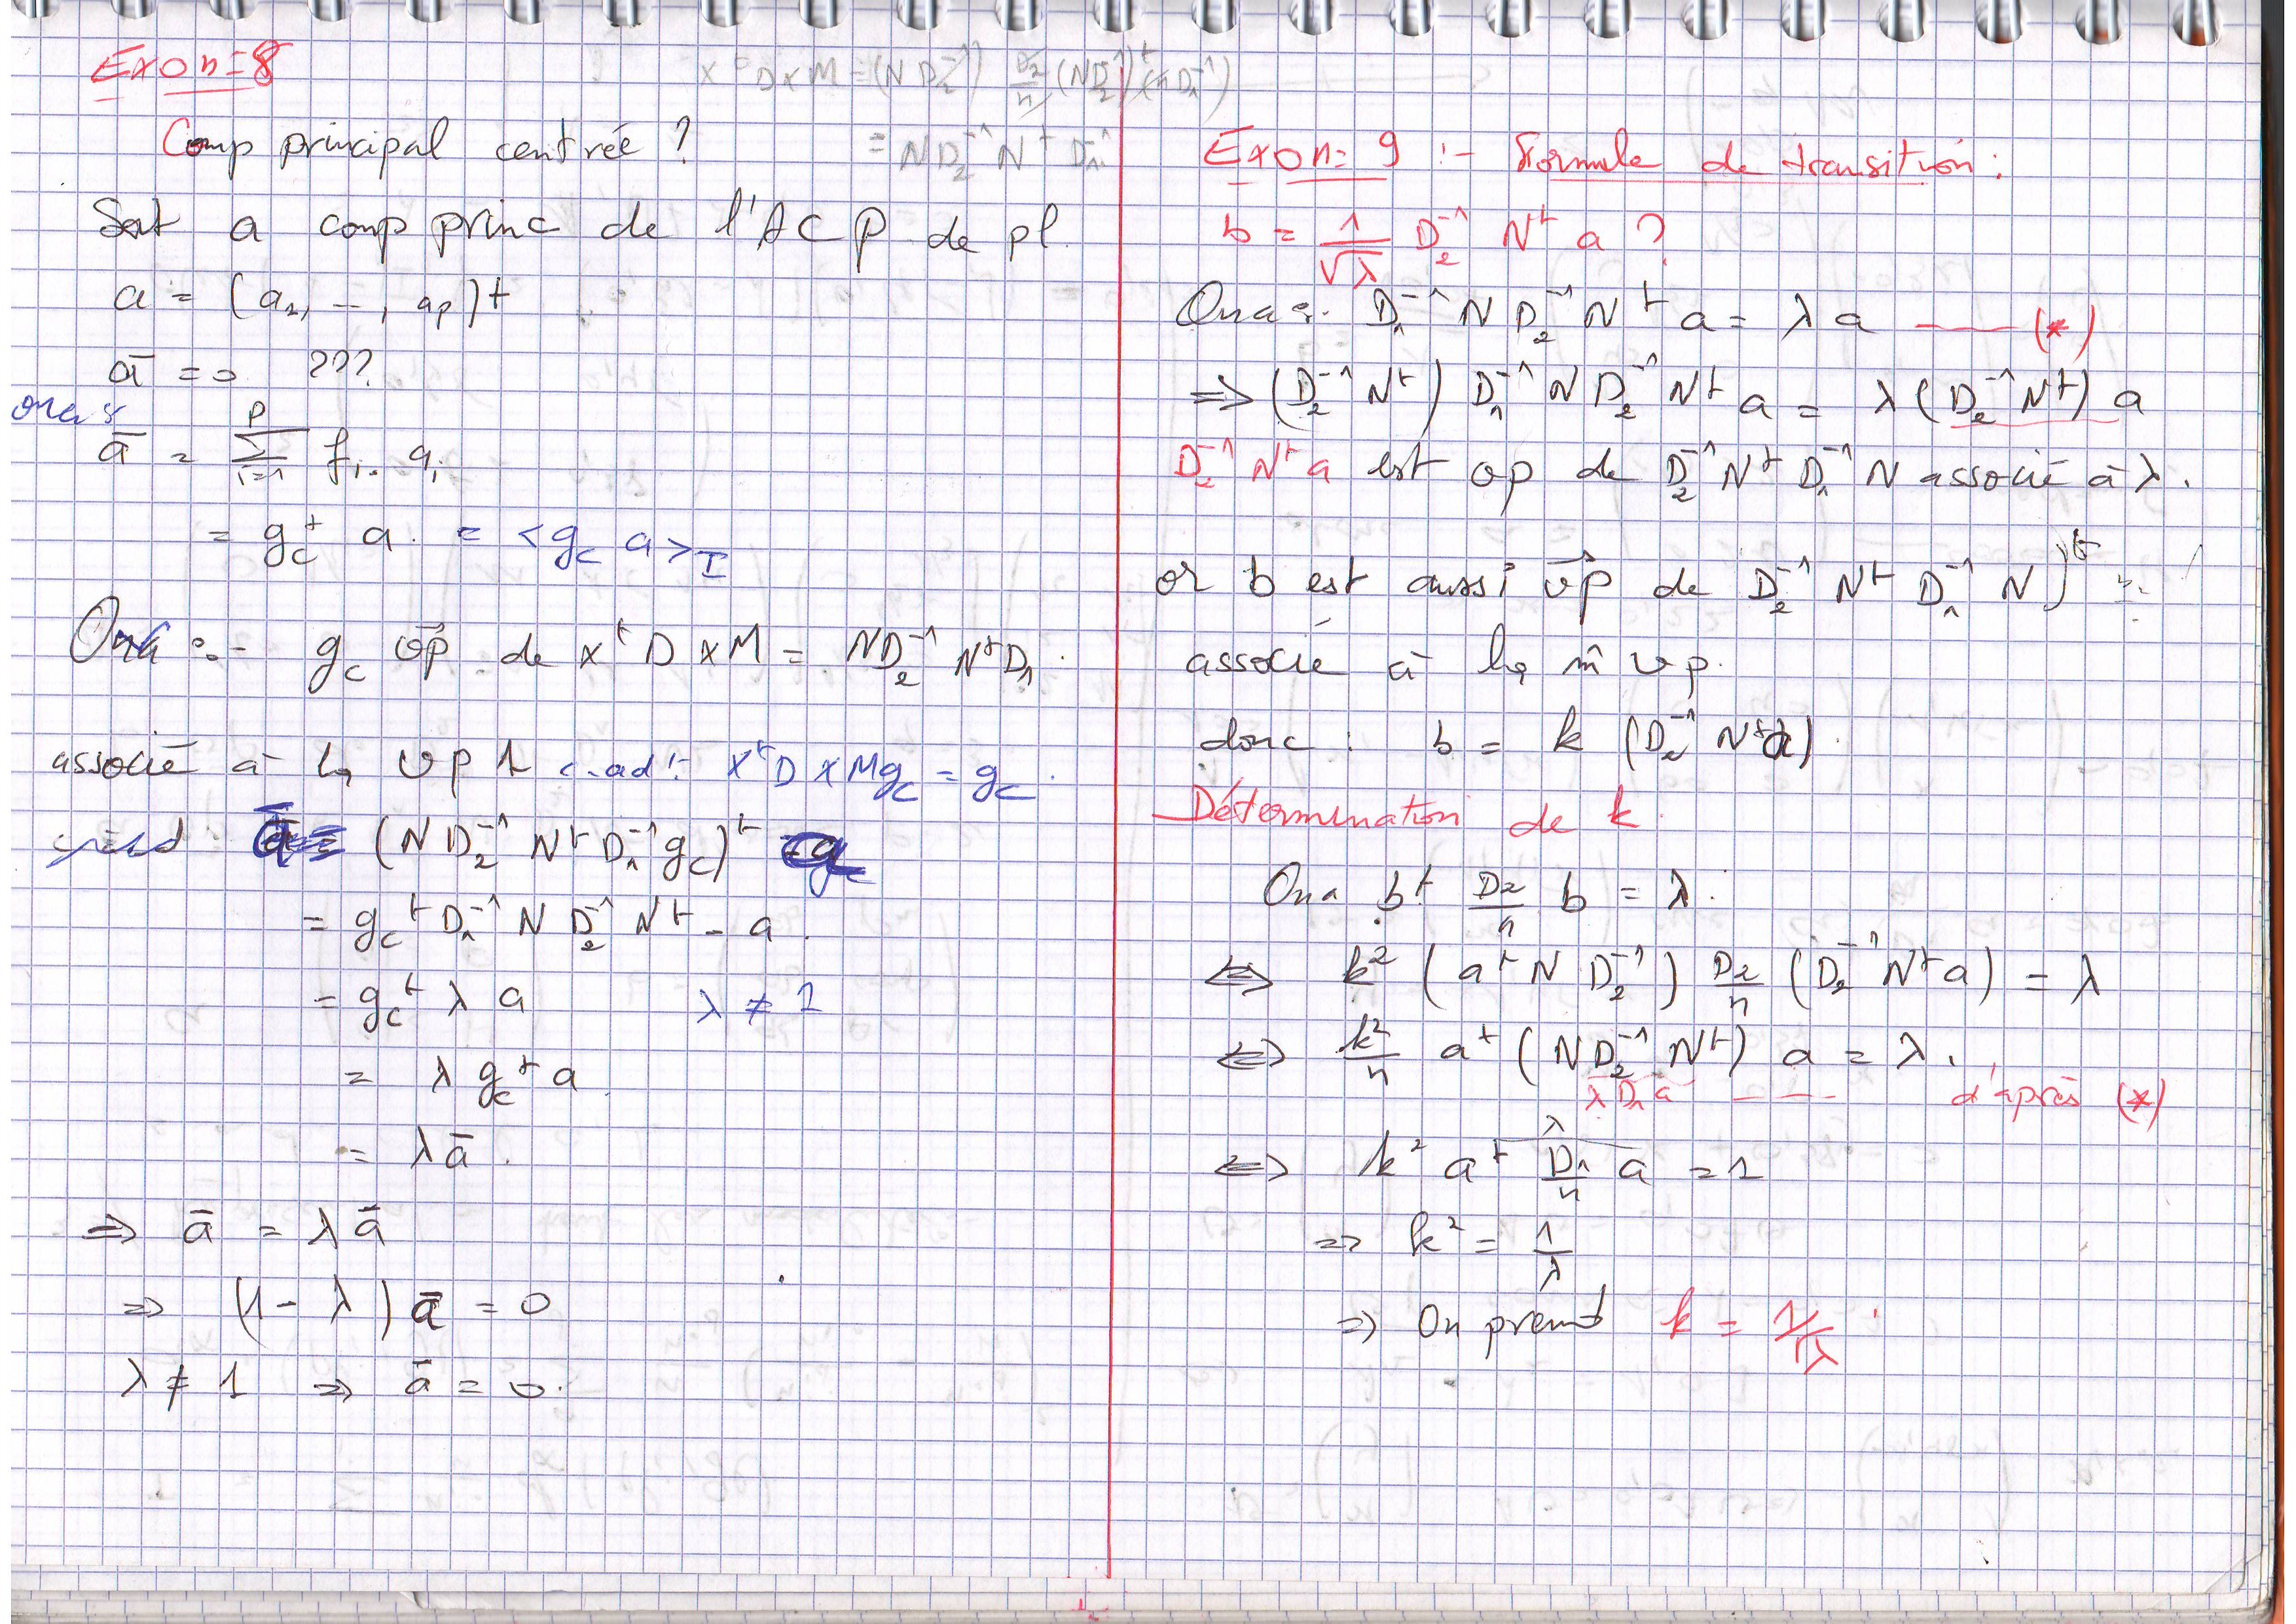 Exo n=8
X^t D X M = (N D_2^-1) D_2/n (N D_2^-1)^t (n D_1^-1)
= N D_2^-1 N^t D_1^-1
Comp principal centrée ?
Soit a comp princ de l'ACP de pl
a = (a_1, --, a_p)^t
ā = 0 ???
ona :
ā = Σ_{i=1}^{p} f_i. a_i
= g_c^t a. = <g_c a>_I
Ona :- g_c v⃗p de X^t D X M = N D_2^-1 N^t D_1.
associé à la vp 1 c.ad :- X^t D X M g_c = g_c.
(N D_2^-1 N^t D_1^-1 g_c)^t
= g_c^t D_1^-1 N D_2^-1 N^t - a.
= g_c^t λ a λ ≠ 1
= λ g_c^t a
= λ ā.
⇒ ā = λ ā
⇒ (1 - λ) ā = 0
λ ≠ 1 ⇒ ā = 0.
Exo n= 9 :- Formule de transition :
b = 1/√λ D_2^-1 N^t a ?
Ona :- D_1^-1 N D_2^-1 N^t a = λ a —— (*)
⇒ (D_2^-1 N^t) D_1^-1 N D_2^-1 N^t a = λ (D_2^-1 N^t) a
D_2^-1 N^t a est vp de D_2^-1 N^t D_1^-1 N associé à λ.
or b est aussi v⃗p de D_2^-1 N^t D_1^-1 N
associé à la m̂ vp.
donc : b = k (D_2^-1 N^t a).
Détermination de k.
Ona b^t D_2/n b = λ.
⇔ k^2 (a^t N D_2^-1) D_2/n (D_2^-1 N^t a) = λ
⇔ k^2/n a^t (N D_2^-1 N^t) a = λ.
λ D_1 a ---- d'après (*)
λ
⇔ k^2 a^t D_1/n a = 1
⇒ k^2 = 1/λ
⇒ On prend k = 1/√λ.